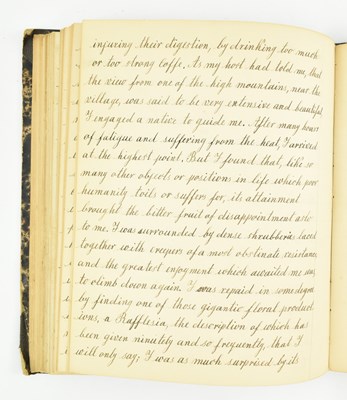 injuring their digestion, by drinking too much
or too strong coffe. As my host had told me, that
the view from one of the high mountains, near the
village, was said to be very extensive and beautiful
I engaged a native to guide me. After many hours
of fatigue and suffering from the heat, I arrived
at the highest point. But I found that, like so
many other objects or positions in life which poor
humanity toils or suffers for, its attainment
brought the bitter fruit of disappointment also
to me. I was surrounded by dense shrubberis laced
together with creepers of a most obstinate resistance
and the greatest enjoyment which awaited me was,
to climb down again. I was repaid in some degree
by finding one of those gigantic floral product
ions, a Rafflesia, the description of which has
been given minutely and so frequently, that I
will only say; I was as much surprised by its